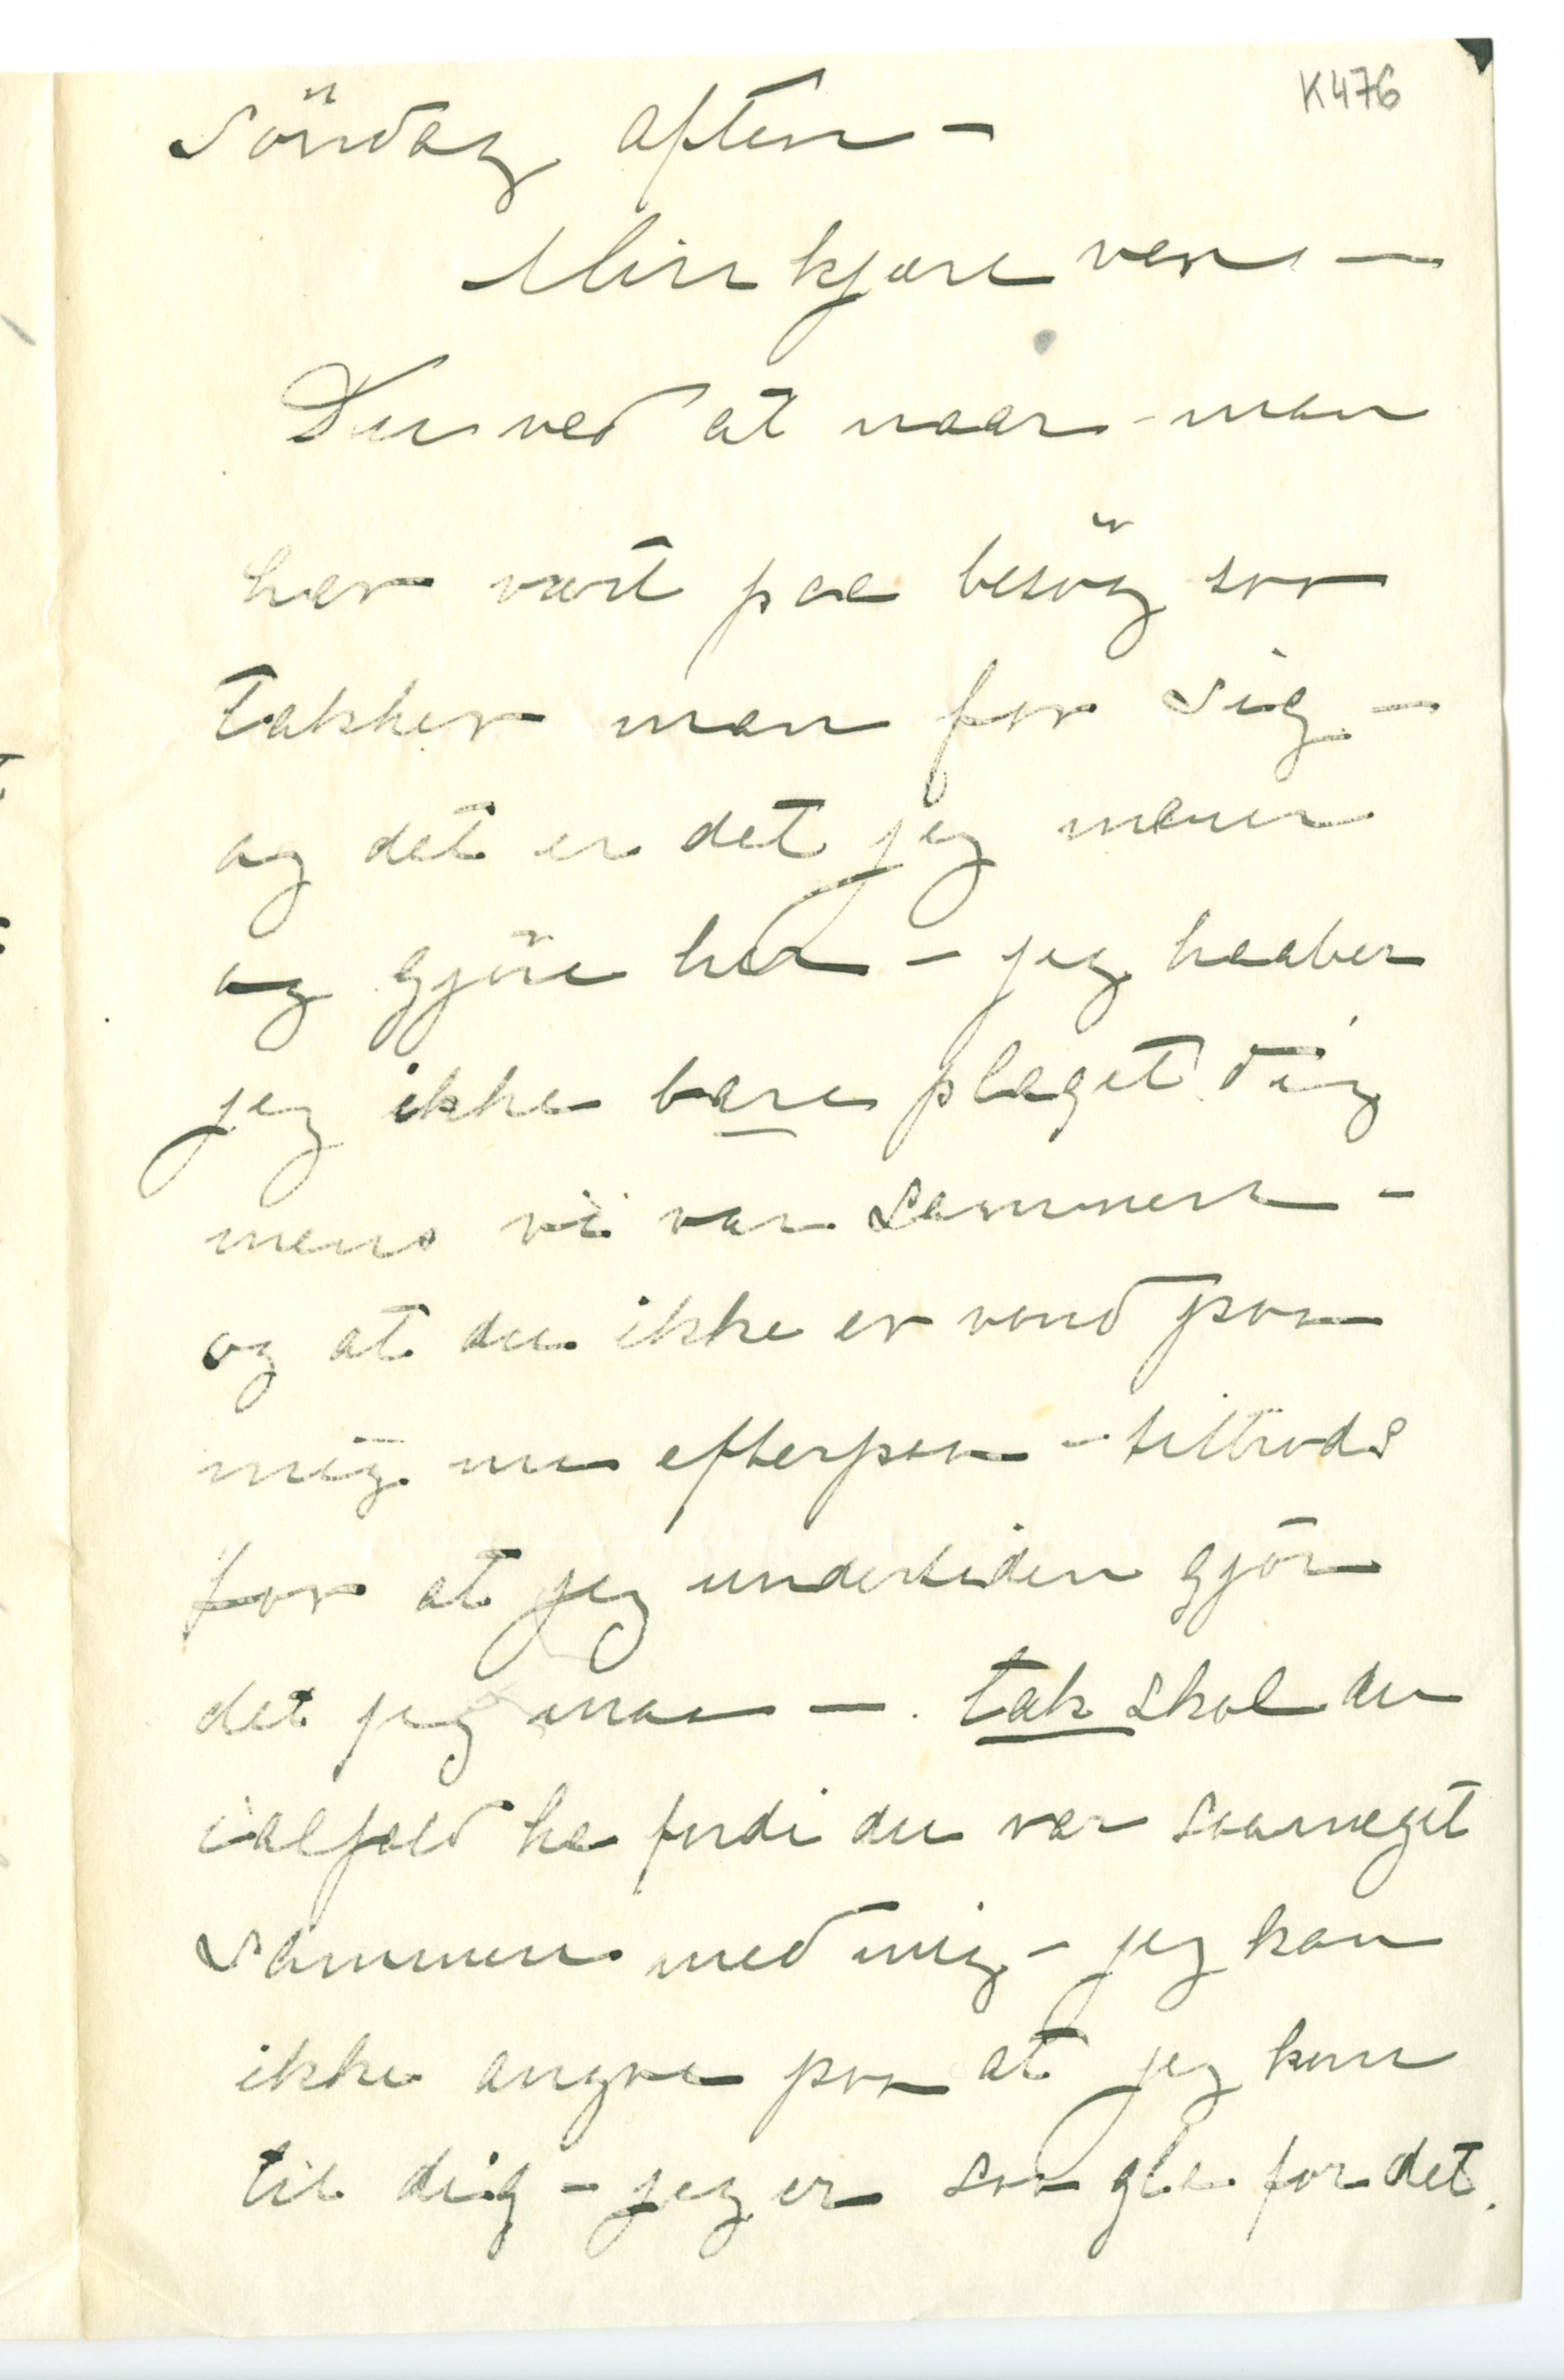 K476
Söndag aften –
Min kjære ven –
Du ved at naar man
har vært paa besög saa
takker man for sig –
og det er det jeg mener
og gjöre her – jeg haaber
jeg ikke bare plaget dig
mens vi var sammen –
og at du ikke er vond paa
mig nu efterpaa – tiltrods
for at jeg undertiden gjör
det jeg maa – . tak skal du
ialfald ha fordi du var saameget
sammen med mig – jeg kan
ikke angre paa at jeg kom
til dig – jeg er saa gla for det.